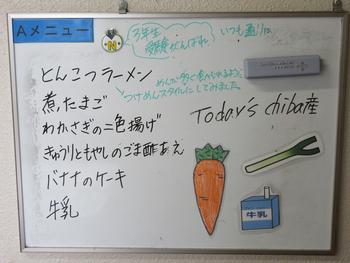 Aメニュー
N
3年生
受験がんばれ
いつも通りに
とんこつラーメン
めんが多く食べられるように
つけめんスタイルにしてみました。
煮たまご
わかさぎの二色揚げ
きゅうりともやしのごま酢あえ
バナナのケーキ
牛乳
Today's chiba産
牛乳